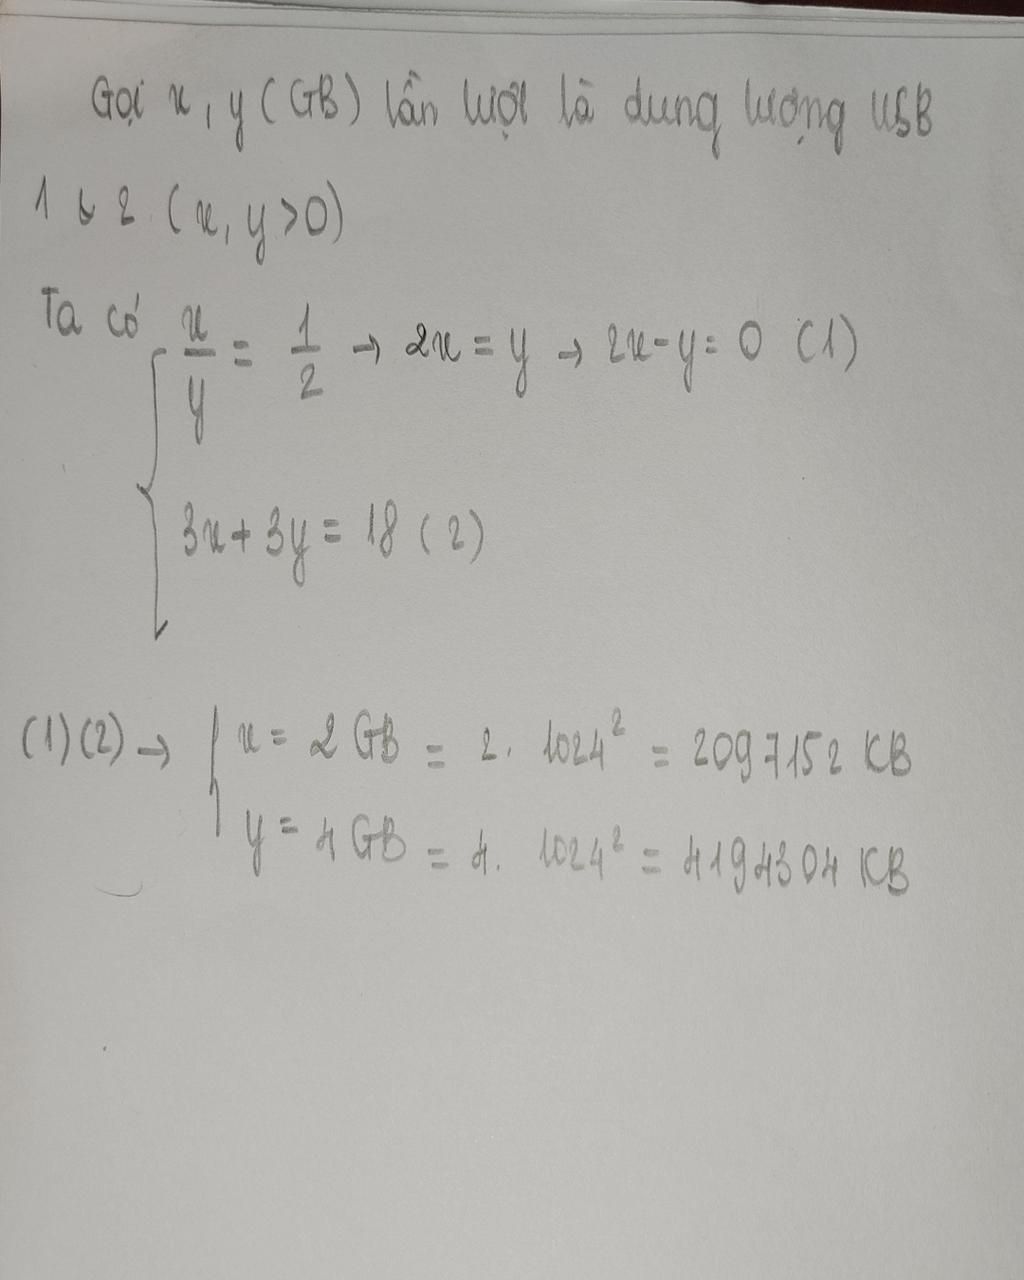 Gọi x, y (GB) lần lượt là dung lượng USB
1 & 2 (x, y > 0)
Ta có x/y = 1/2 → 2x = y → 2x - y = 0 (1)
3x + 3y = 18 (2)
(1)(2) → x = 2 GB = 2. 1024² = 2097152 KB
y = 4 GB = 4. 1024² = 4194304 KB